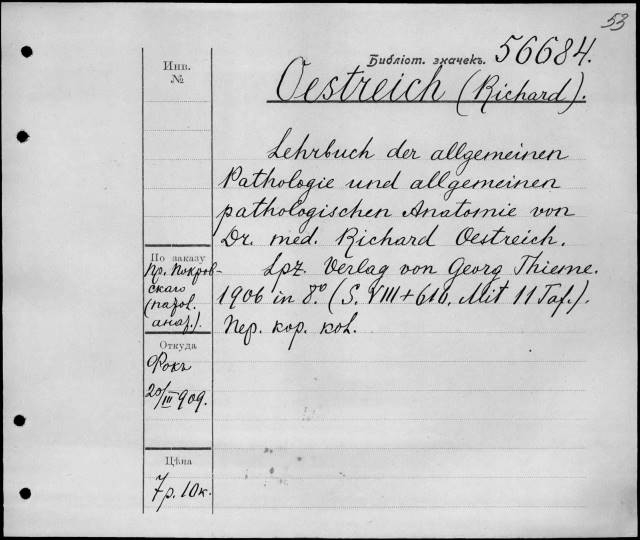 53
Библіот. значекъ. 56684.
Инв.
№
Oestreich (Richard).
Lehrbuch der allgemeinen
Pathologie und allgemeinen
pathologischen Anatomie von
Dr. med. Richard Oestreich.
Lpz. Verlag von Georg Thieme.
1906 in 8.º (S. VIII+616. Mit 11 Taf.).
Пер. кор. кол.
По заказу
Пр. Покров-
скаго
(патол.
анат.).
Откуда
Фокъ
20/III 909.
Цѣна
7 р. 10 к.